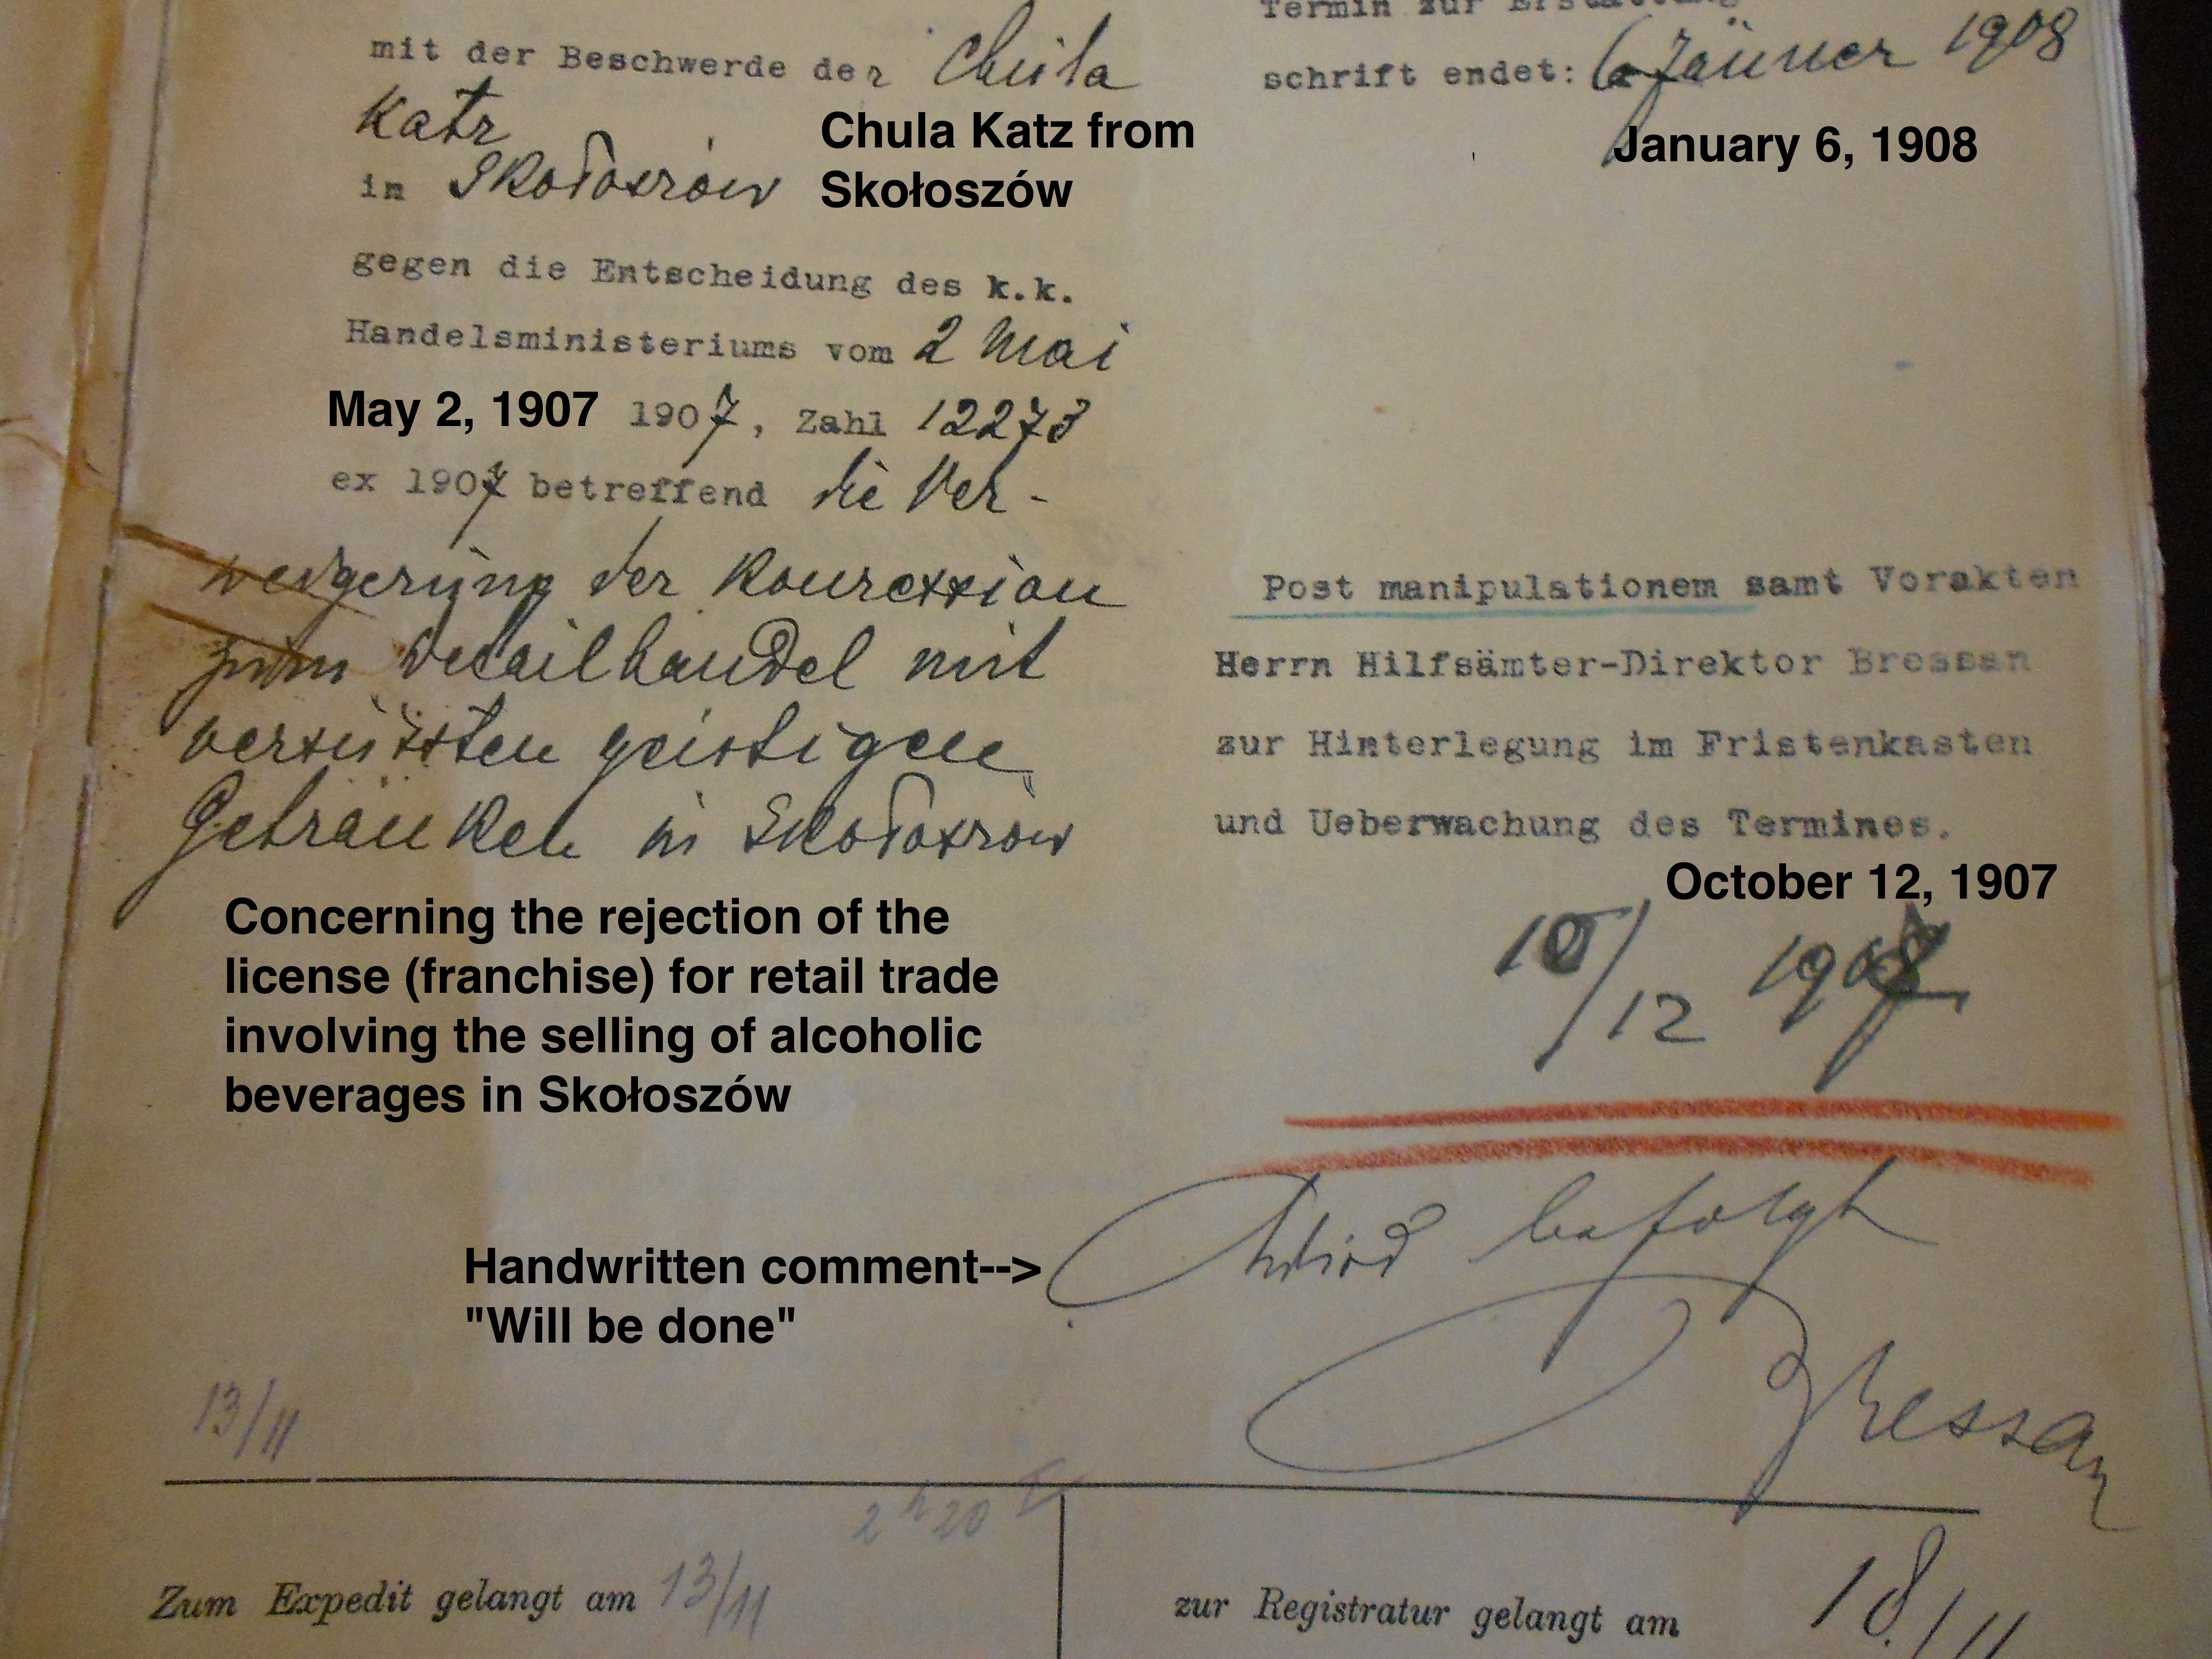 mit der Beschwerde der Chula
Katz
in Skołoszów
Chula Katz from
Skołoszów
gegen die Entscheidung des k.k.
Handelsministeriums vom 2 Mai
May 2, 1907
1907, Zahl 12273
ex 1907 betreffend die Ver-
weigerung der Konzession
zum Detailhandel mit
versüssten geistigen
Getränken in Skołoszów
Concerning the rejection of the
license (franchise) for retail trade
involving the selling of alcoholic
beverages in Skołoszów
Handwritten comment-->
"Will be done"
13/11
Termin zur Erstattung
schrift endet: 6 Jänner 1908
January 6, 1908
Post manipulationem samt Vorakten
Herrn Hilfsämter-Direktor Bressan
zur Hinterlegung im Fristenkasten
und Ueberwachung des Termines.
October 12, 1907
/12 1907
Wird befolgt
Bressan
2h20
Zum Expedit gelangt am 13/11
zur Registratur gelangt am 18./11